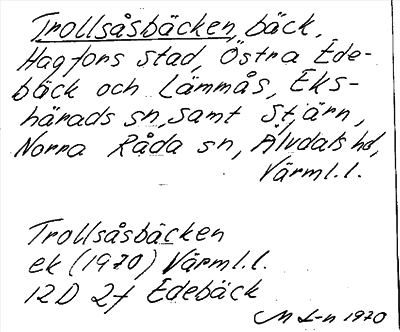 Trollsåsbäcken, bäck,
Hagfors stad, Östra Ede-
bäck och Lämmås, Eks-
härads sn, samt Stjärn,
Norra Råda sn, Älvdals hd,
Värml.l.
Trollsåsbäcken
ek (1970) Värml.l.
12D 2f Edebäck
M L-n 1970